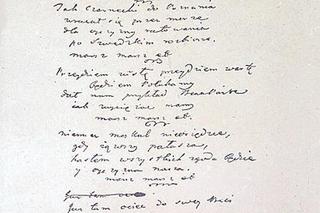 Jak Czarnecki do Poznania
wracał się przez morze
dla ojczyzny ratowania
po szwedzkim rozbiorze.
marsz marsz et
Przejdziem Wisłę przejdziem Wartę
Będziem Polakamy
dał nam przykład Bonaparte
jak zwyciężać mamy
marsz marsz et
niemiec moskal nieosiędzie,
gdy jąwszy pałasza,
hasłem wszystkich zgoda będzie
y ojczyzna nasza.
marsz marsz et
Już tam ociec
Już tam ociec do swey Basi